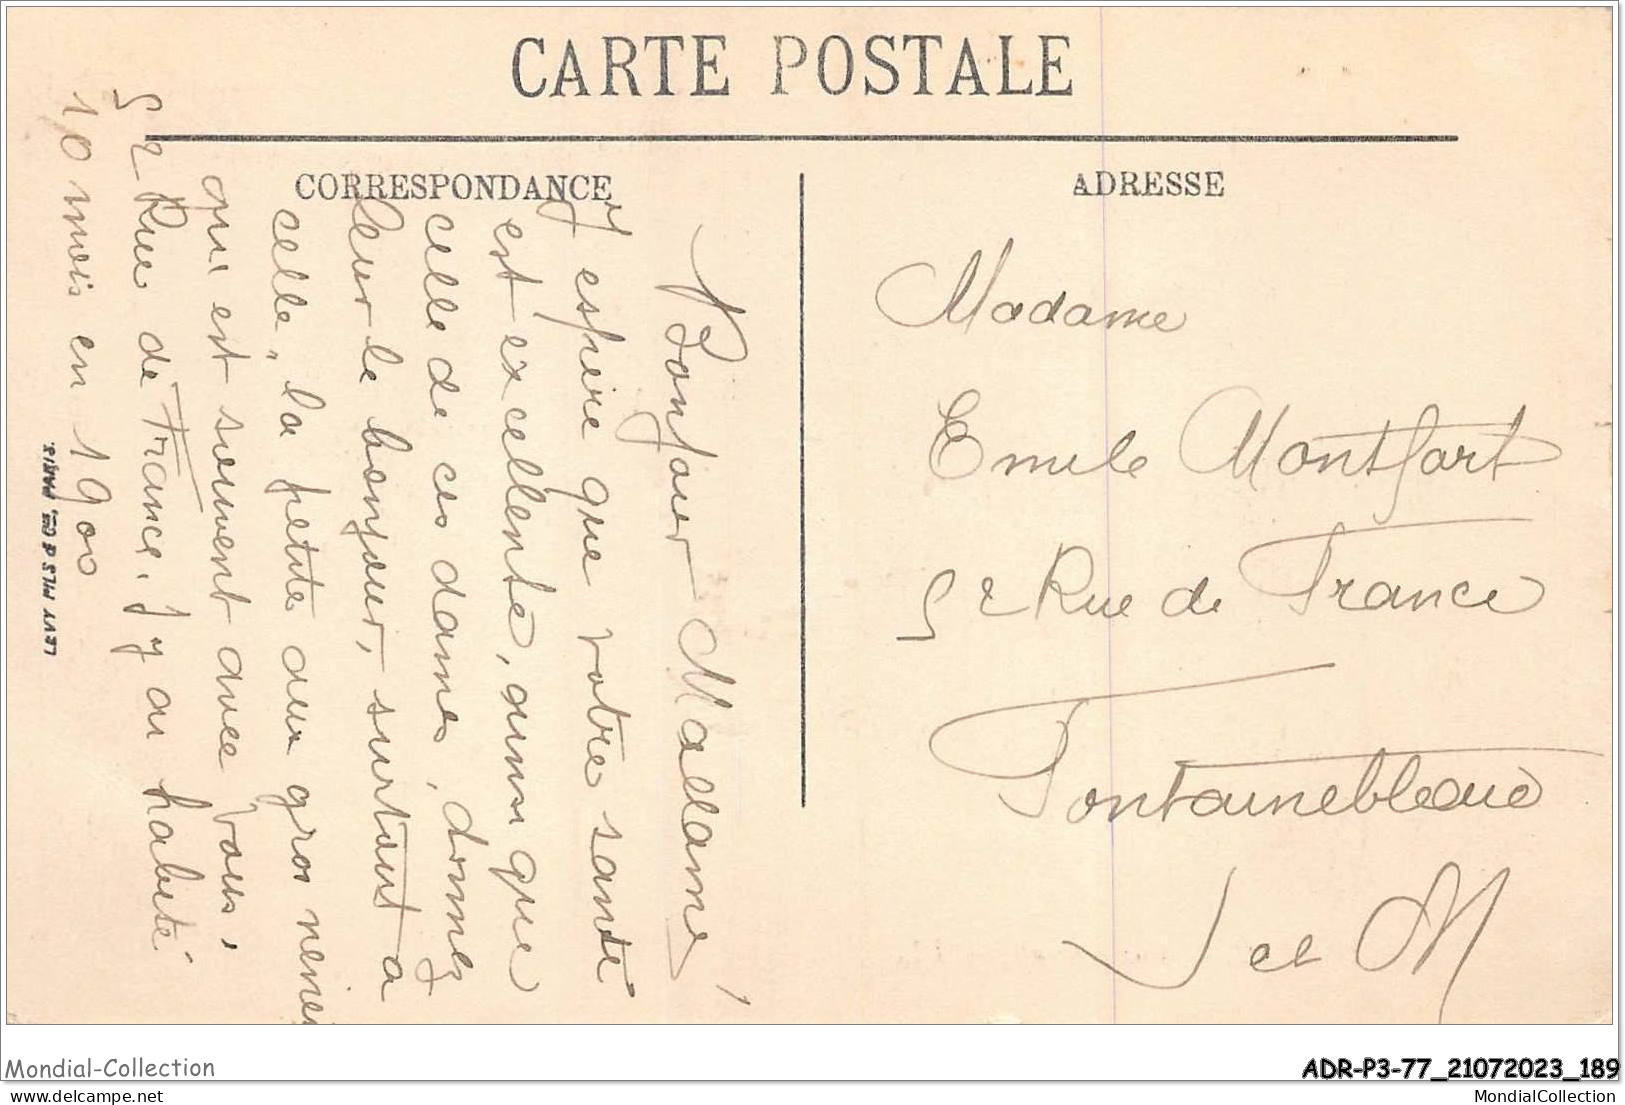 CARTE POSTALE
CORRESPONDANCE
ADRESSE
Bonjour Madame,
J'espère que votre santé
est excellente, ainsi que
celle de ces dames, donnez
leur le bonjour, surtout a
celle, la petite aux gros
qui est souvent avec vous,
52 Rue de France. J'y ai habité
10 mois en 1900
LEVY FILS & Cie, PARIS.
Madame
Emile Montfort
52 Rue de France
Fontainebleau
S et M
Mondial-Collection
ADR-P3-77_21072023_189
delcampe.net
MondialCollection